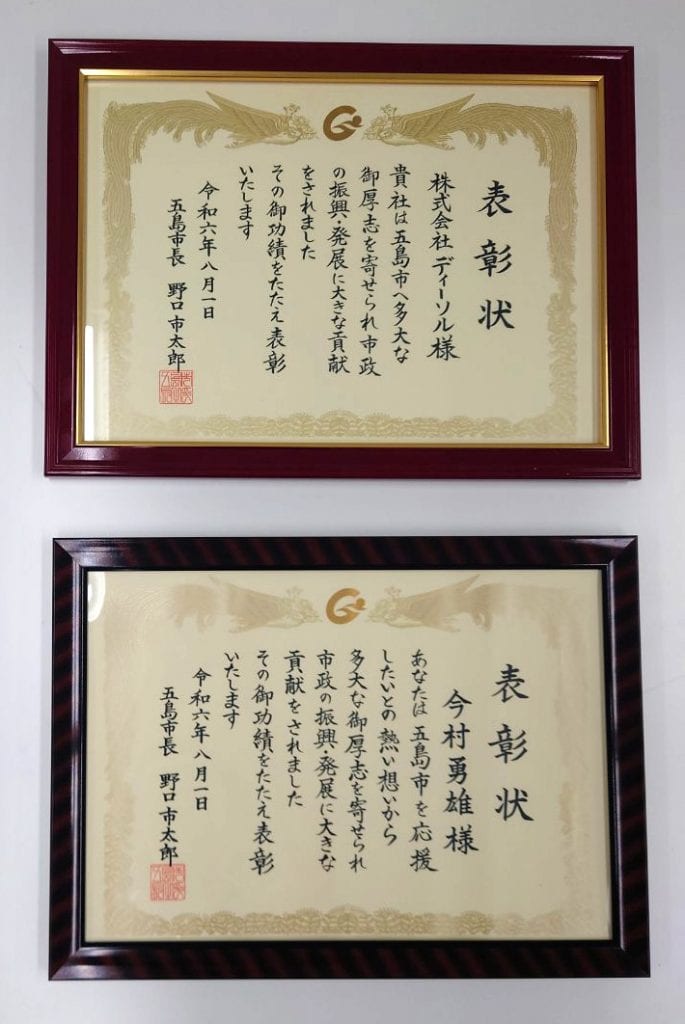 表彰状
株式会社 ディーソル様
貴社は五島市へ多大な
御厚志を寄せられ市政
の振興・発展に大きな貢献
をされました
その御功績をたたえ表彰
いたします
令和六年八月一日
五島市長 野口市太郎
表彰状
今村勇雄様
あなたは五島市を応援
したいとの熱い想いから
多大な御厚志を寄せられ
市政の振興・発展に大きな
貢献をされました
その御功績をたたえ表彰
いたします
令和六年八月一日
五島市長 野口市太郎